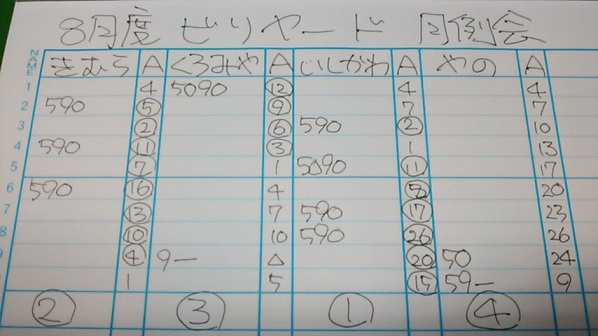 8月度 ビリヤード 月例会
NAME きむら A くろみや A いしがわ A やの A
1 4 5090 ⑫ 4 4
2 590 ⑤ ⑨ 7 7
3 ② ⑥ 590 ② 10
4 590 ⑪ ③ 1 13
5 7 1 5090 ⑪ 17
6 590 ⑯ 4 20
7 ⑬ 7 590 ⑰ 23
8 ⑩ 10 590 ㉖ 26
④ 9ー △ ⑳ 50 24
1 5 ⑮ 59ー 9
② ③ ① ④